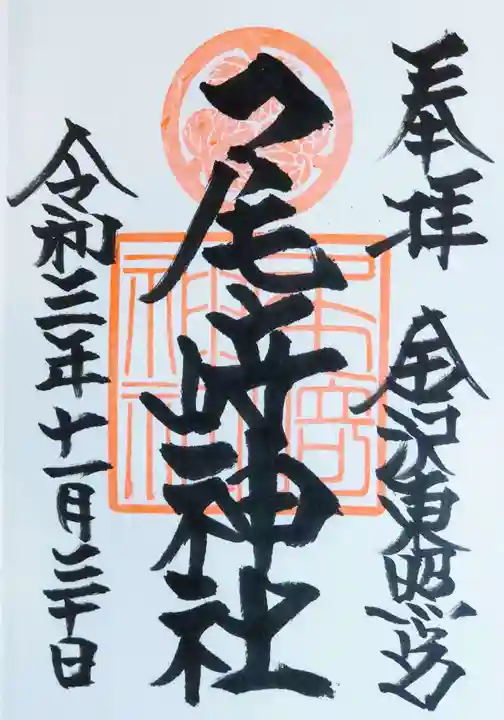 奉拝
金沢東照宮
尾﨑神社
令和三年十一月二十日